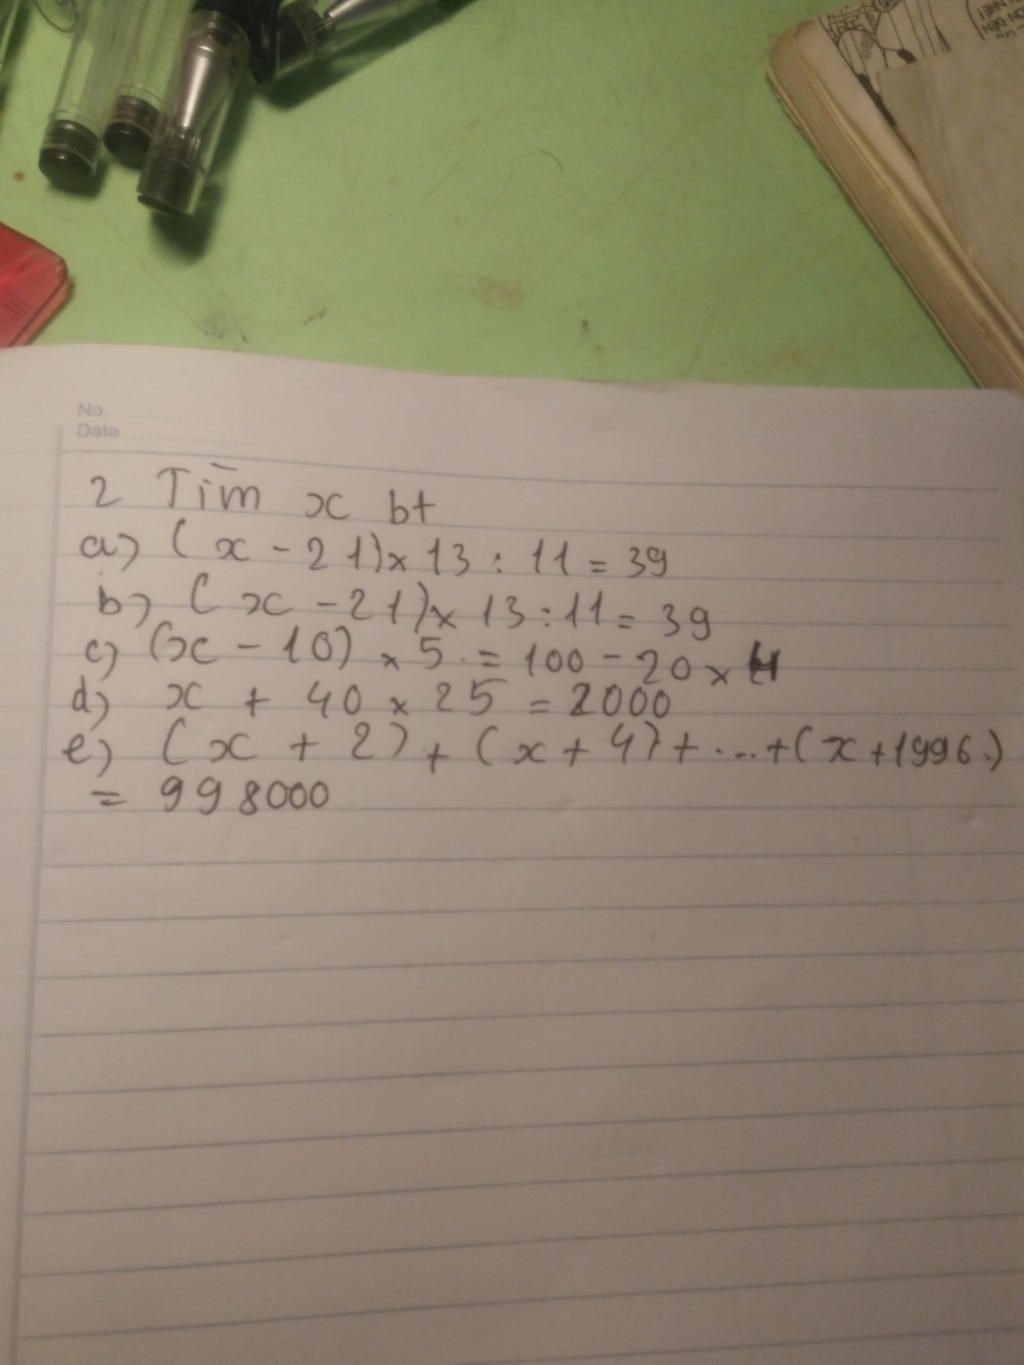 No.
Date
2 Tìm x bt
a) (x - 21) x 13 : 11 = 39
b) (x - 21) x 13 : 11 = 39
c) (x - 10) x 5 = 100 - 20 x 4
d) x + 40 x 25 = 2000
e) (x + 2) + (x + 4) + ... + (x + 1996)
= 998000